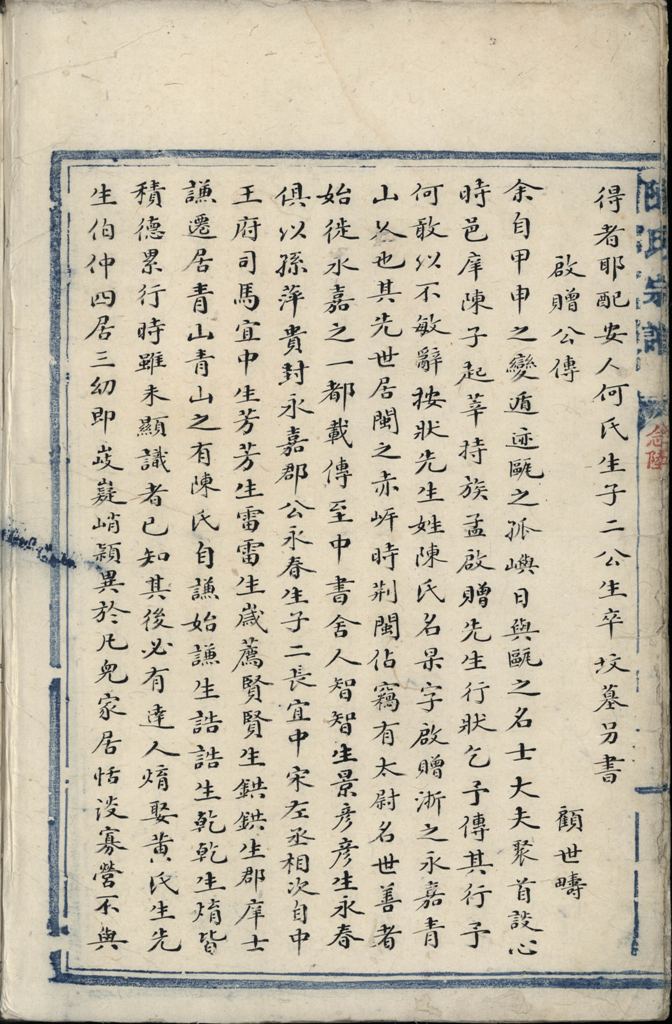 氏宗譜
念陸
得者耶配安人何氏生子二公生卒坟墓另書
啟贈公傳
顧世疇
余自甲申之變遁迹甌之孤嶼日與甌之名士大夫聚首談心
時邑庠陳子起莘持族孟啟贈先生行狀乞予傳其行予
何敢以不敏辭按狀先生姓陳氏名杲字啟贈浙之永嘉青
山人也其先世居閩之赤岸時荆閩佔竊有太尉名世善者
始徙永嘉之一都載傳至中書舍人智智生景彦彦生永春
俱以孫萍貴封永嘉郡公永春生子二長宜中宋左丞相次自中
王府司馬宜中生芳芳生雷雷生嵗薦賢賢生鉷鉷生郡庠士
謙遷居青山青山之有陳氏自謙始謙生誥誥生乾乾生焴皆
積德累行時雖未顯識者已知其後必有達人焴娶黄氏生先
生伯仲四居三幼即岐嶷峭頴異於凡兒家居恬淡寡營不與